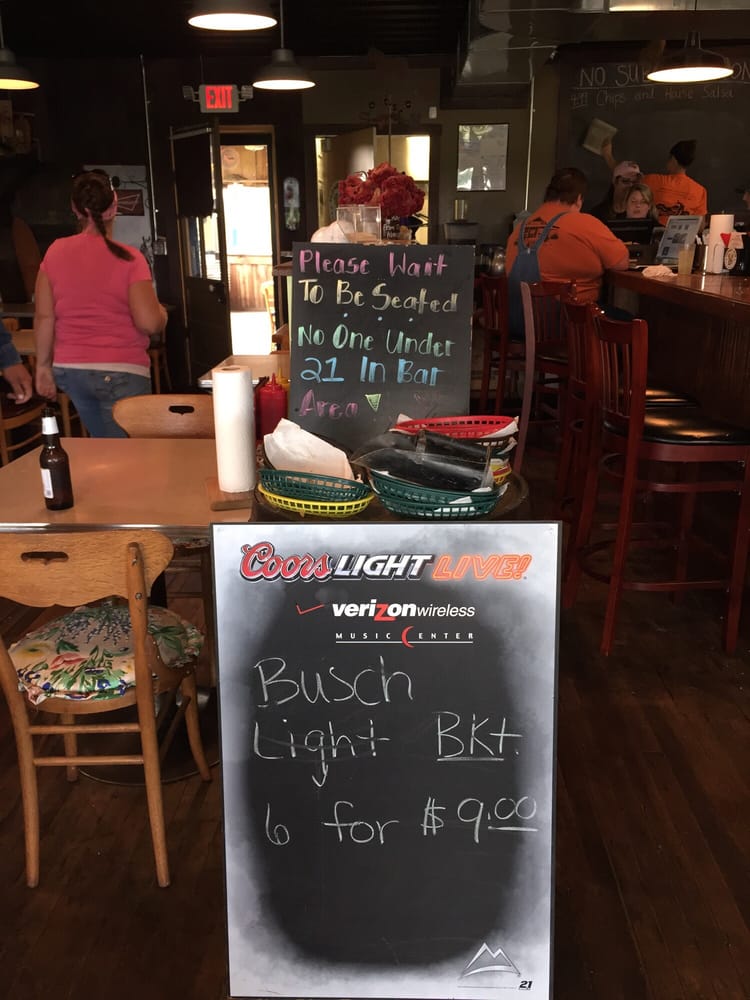 NO
4.99 Chips and House Salsa
EXIT
Please Wait
To Be Seated
No One Under
21 In Bar
Area
Coors LIGHT LIVE!
verizon wireless
MUSIC CENTER
Busch
Light BKt.
6 for $9.00
21